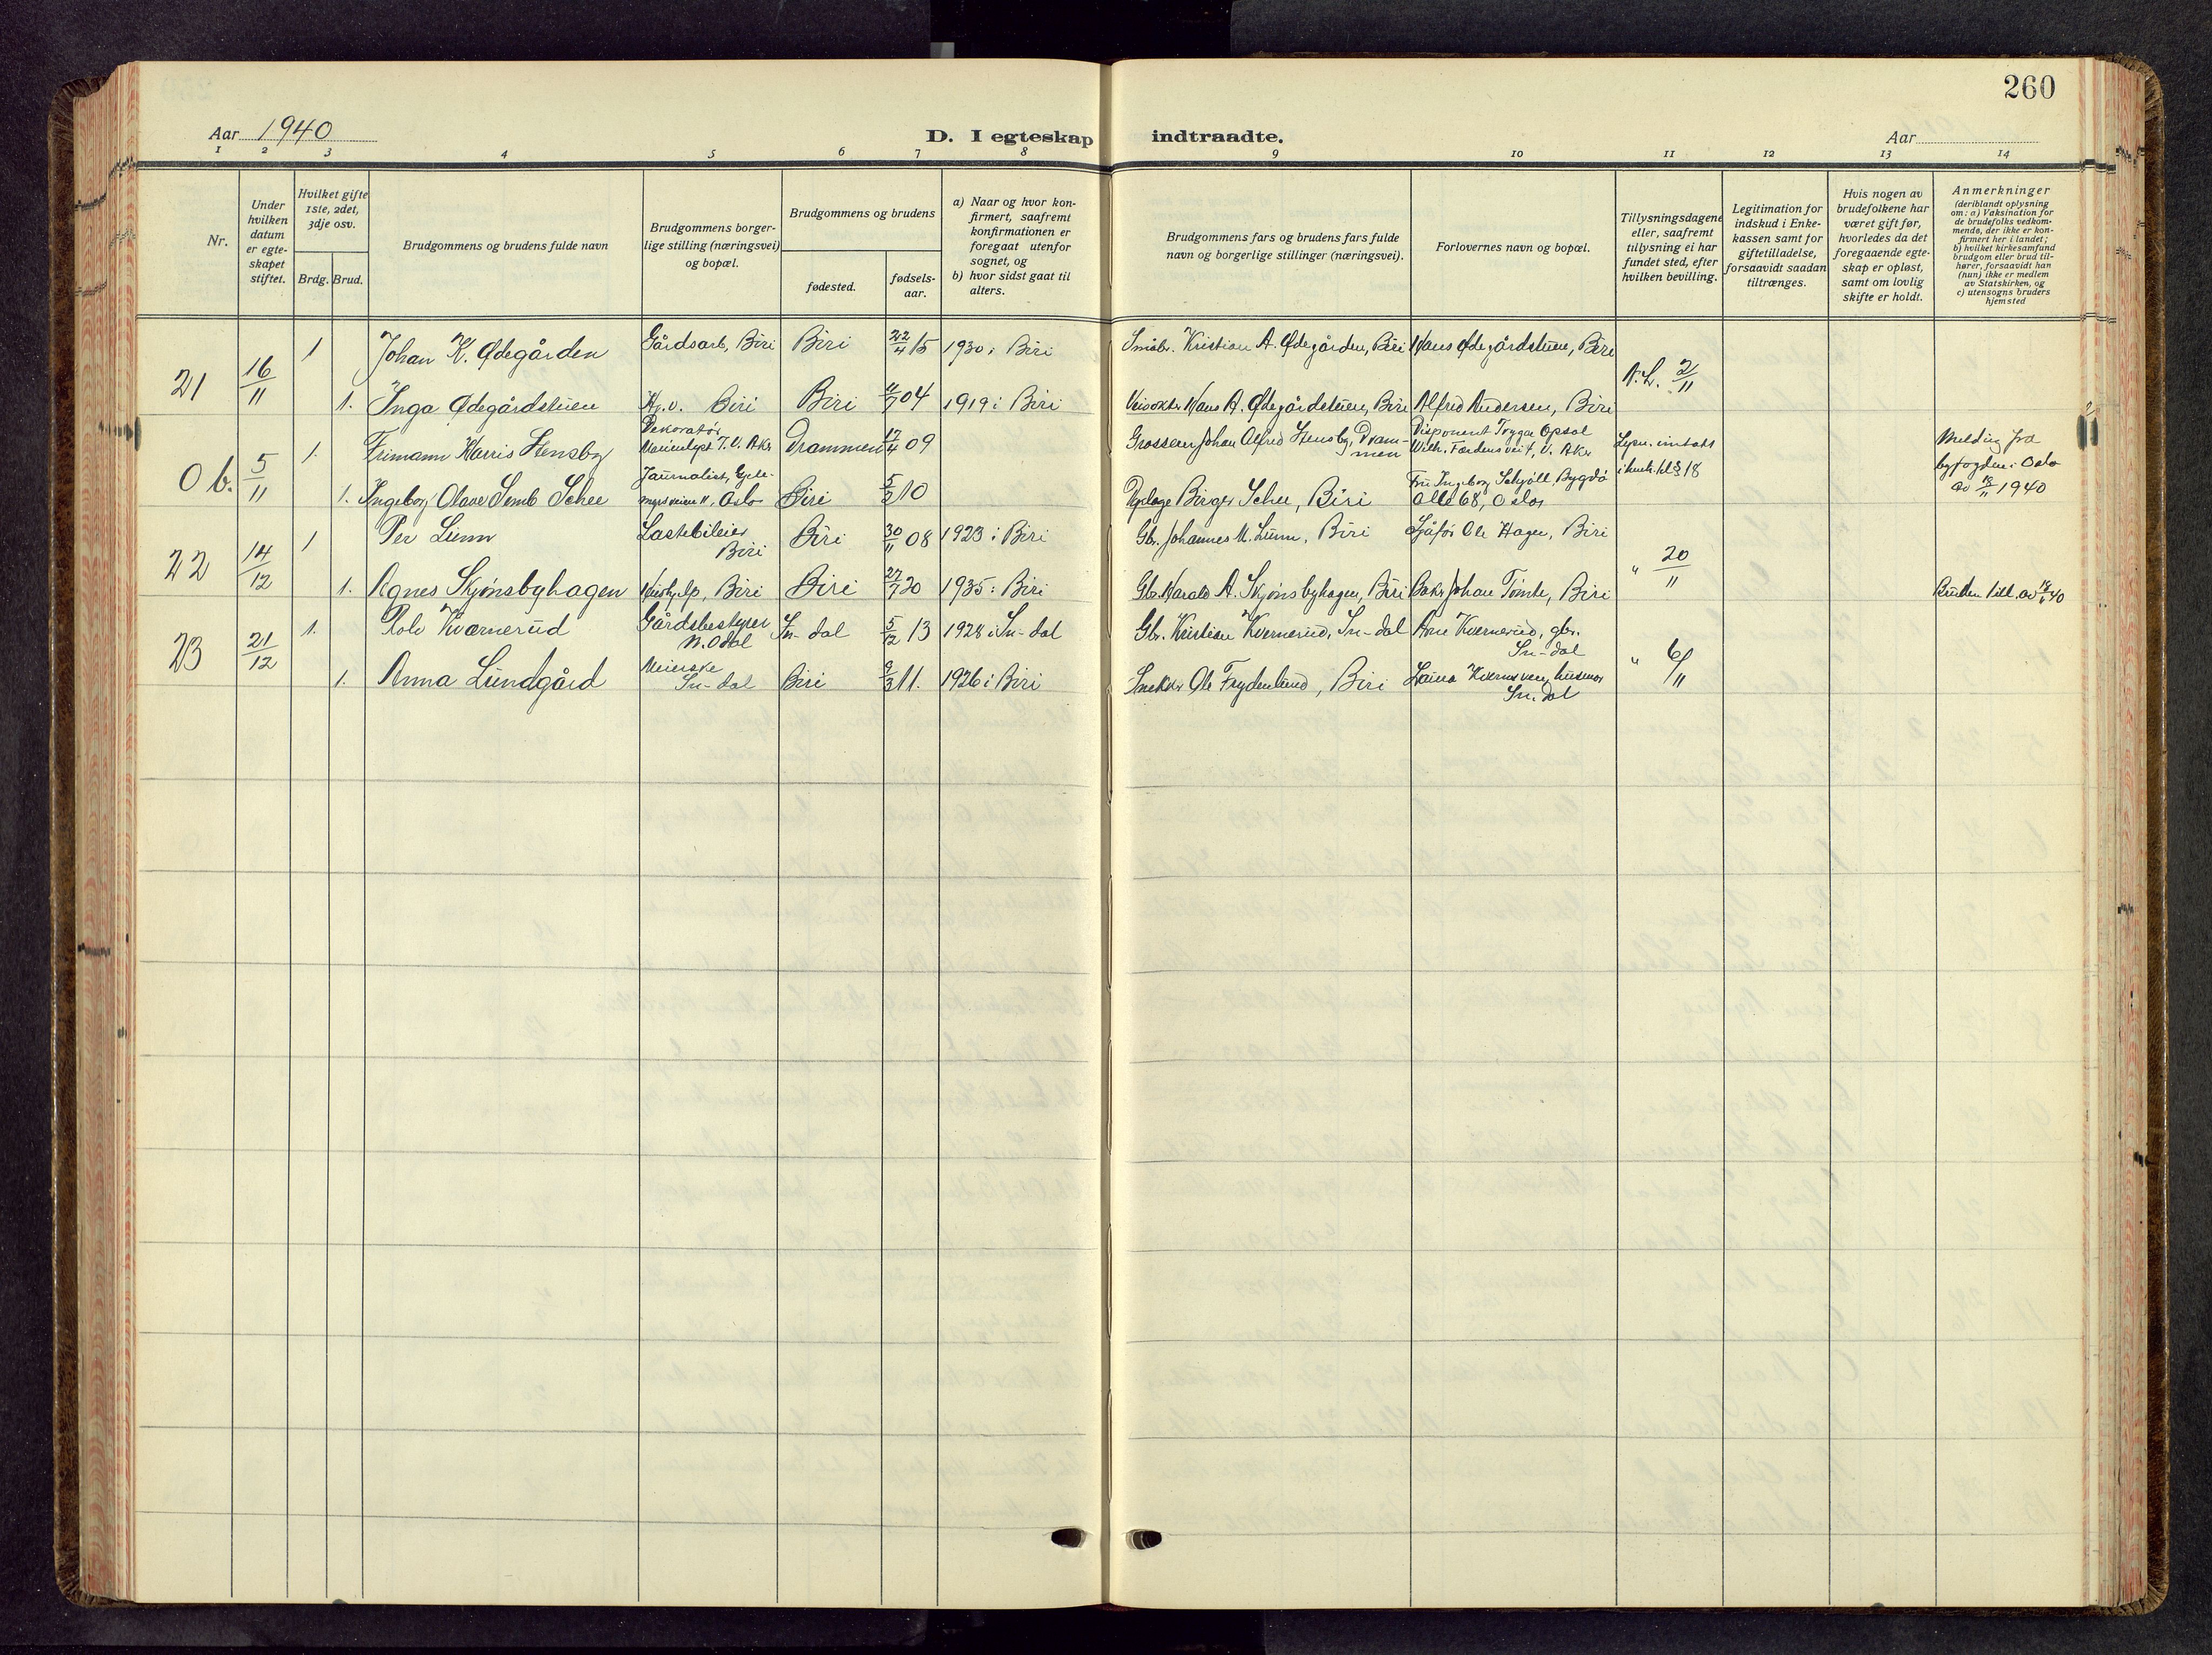 260
Aar 1940
D. I egteskap indtraadte.
Aar
1 2 3 4 5 6 7 8 9 10 11 12 13 14
Nr.
Under hvilken datum er egte-skapet stiftet.
Hvilket gifte 1ste, 2det, 3dje osv.
Brdg. Brud.
Brudgommens og brudens fulde navn
Brudgommens borger-lige stilling (næringsvei) og bopæl.
Brudgommens og brudens
fødested.
fødsels-aar.
a) Naar og hvor kon-firmert, saafremt konfirmationen er foregaat utenfor sognet, og
b) hvor sidst gaat til alters.
Brudgommens fars og brudens fars fulde navn og borgerlige stillinger (næringsvei).
Forlovernes navn og bopæl.
Tillysningsdagene eller, saafremt tillysning ei har fundet sted, efter hvilken bevilling.
Legitimation for indskud i Enke-kassen samt for giftetilladelse, forsaavidt saadan tiltrænges.
Hvis nogen av brudefolkene har været gift før, hvorledes da det foregaaende egte-skap er opløst, samt om lovlig skifte er holdt.
Anmerkninger
(deriblandt oplysning om: a) Vaksination for de brudefolks vedkom-mende, der ikke er kon-firmert her i landet; b) hvilket kirkesamfund brudgom eller brud til-hører, forsaavidt han (hun) ikke er medlem av Statskirken, og c) utensogns bruders hjemsted
21 16/11 1 Johan K. Ødegården Gårdsarb, Biri Biri 22/4 15 1930 i Biri Småbr. Kristian A. Ødegården, Biri Hans Ødegårdstuen, Biri N.L. 2/11
1. Inga Ødegårdstuen Hj.v. Biri Biri 04 1919 i Biri Hans A. Ødegårdstuen, Biri Alfred Andersen, Biri
Ob. 5/11 1. Frimann Harris Stensby Dekoratør V. Aker Drammen 17/4 09 Grosserer Johan Alfred Stensby, Drammen Disponent Trygve Opsal V. Aker
1. Ingeborg Olave Semb Schee Journalist, Oslo Biri 5/2 10 Birger Schee, Biri Fru Ingeborg Schjøll, Bygdø Alle 68, Oslo § 18
Melding fra byfogden i Oslo av 18/11 1940
22 14/12 1 Per Lunn Lastebileier Biri Biri 30/11 08 1923 i Biri Gbr. Johannes M. Lunn, Biri Sjåfør Ole Hagen, Biri " 20/11
1. Agnes Skjønsbyhagen Hushjelp, Biri Biri 27/7 20 1935 i Biri Gbr. Harald A. Skjønsbyhagen, Biri Johan Tømte, Biri Bruden till. av 40
23 21/12 1. Rolv Kvernerud Gårdsbestyrer N. Odal Sn-dal 5/12 13 1928 i Sn-dal Gbr. Kristian Kvernerud, Sn-dal Arne Kvernerud, gbr. Sn-dal " 6/11
1. Anna Lundgård Meierske Sn-dal Biri 9/3 11. 1926 i Biri Snekker Ole Frydenlund, Biri Sn.dal